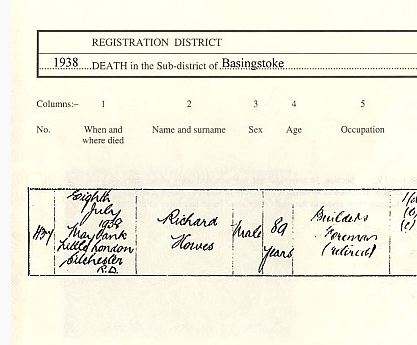 REGISTRATION DISTRICT
1938 DEATH in the Sub-district of Basingstoke
Columns:– 1 2 3 4 5
No. When and where died Name and surname Sex Age Occupation
Eighth
July
1938
May Bank
Little London
Silchester
R.D.
Richard
Howes
Male
89
years
Builder's
Foreman
(retired)